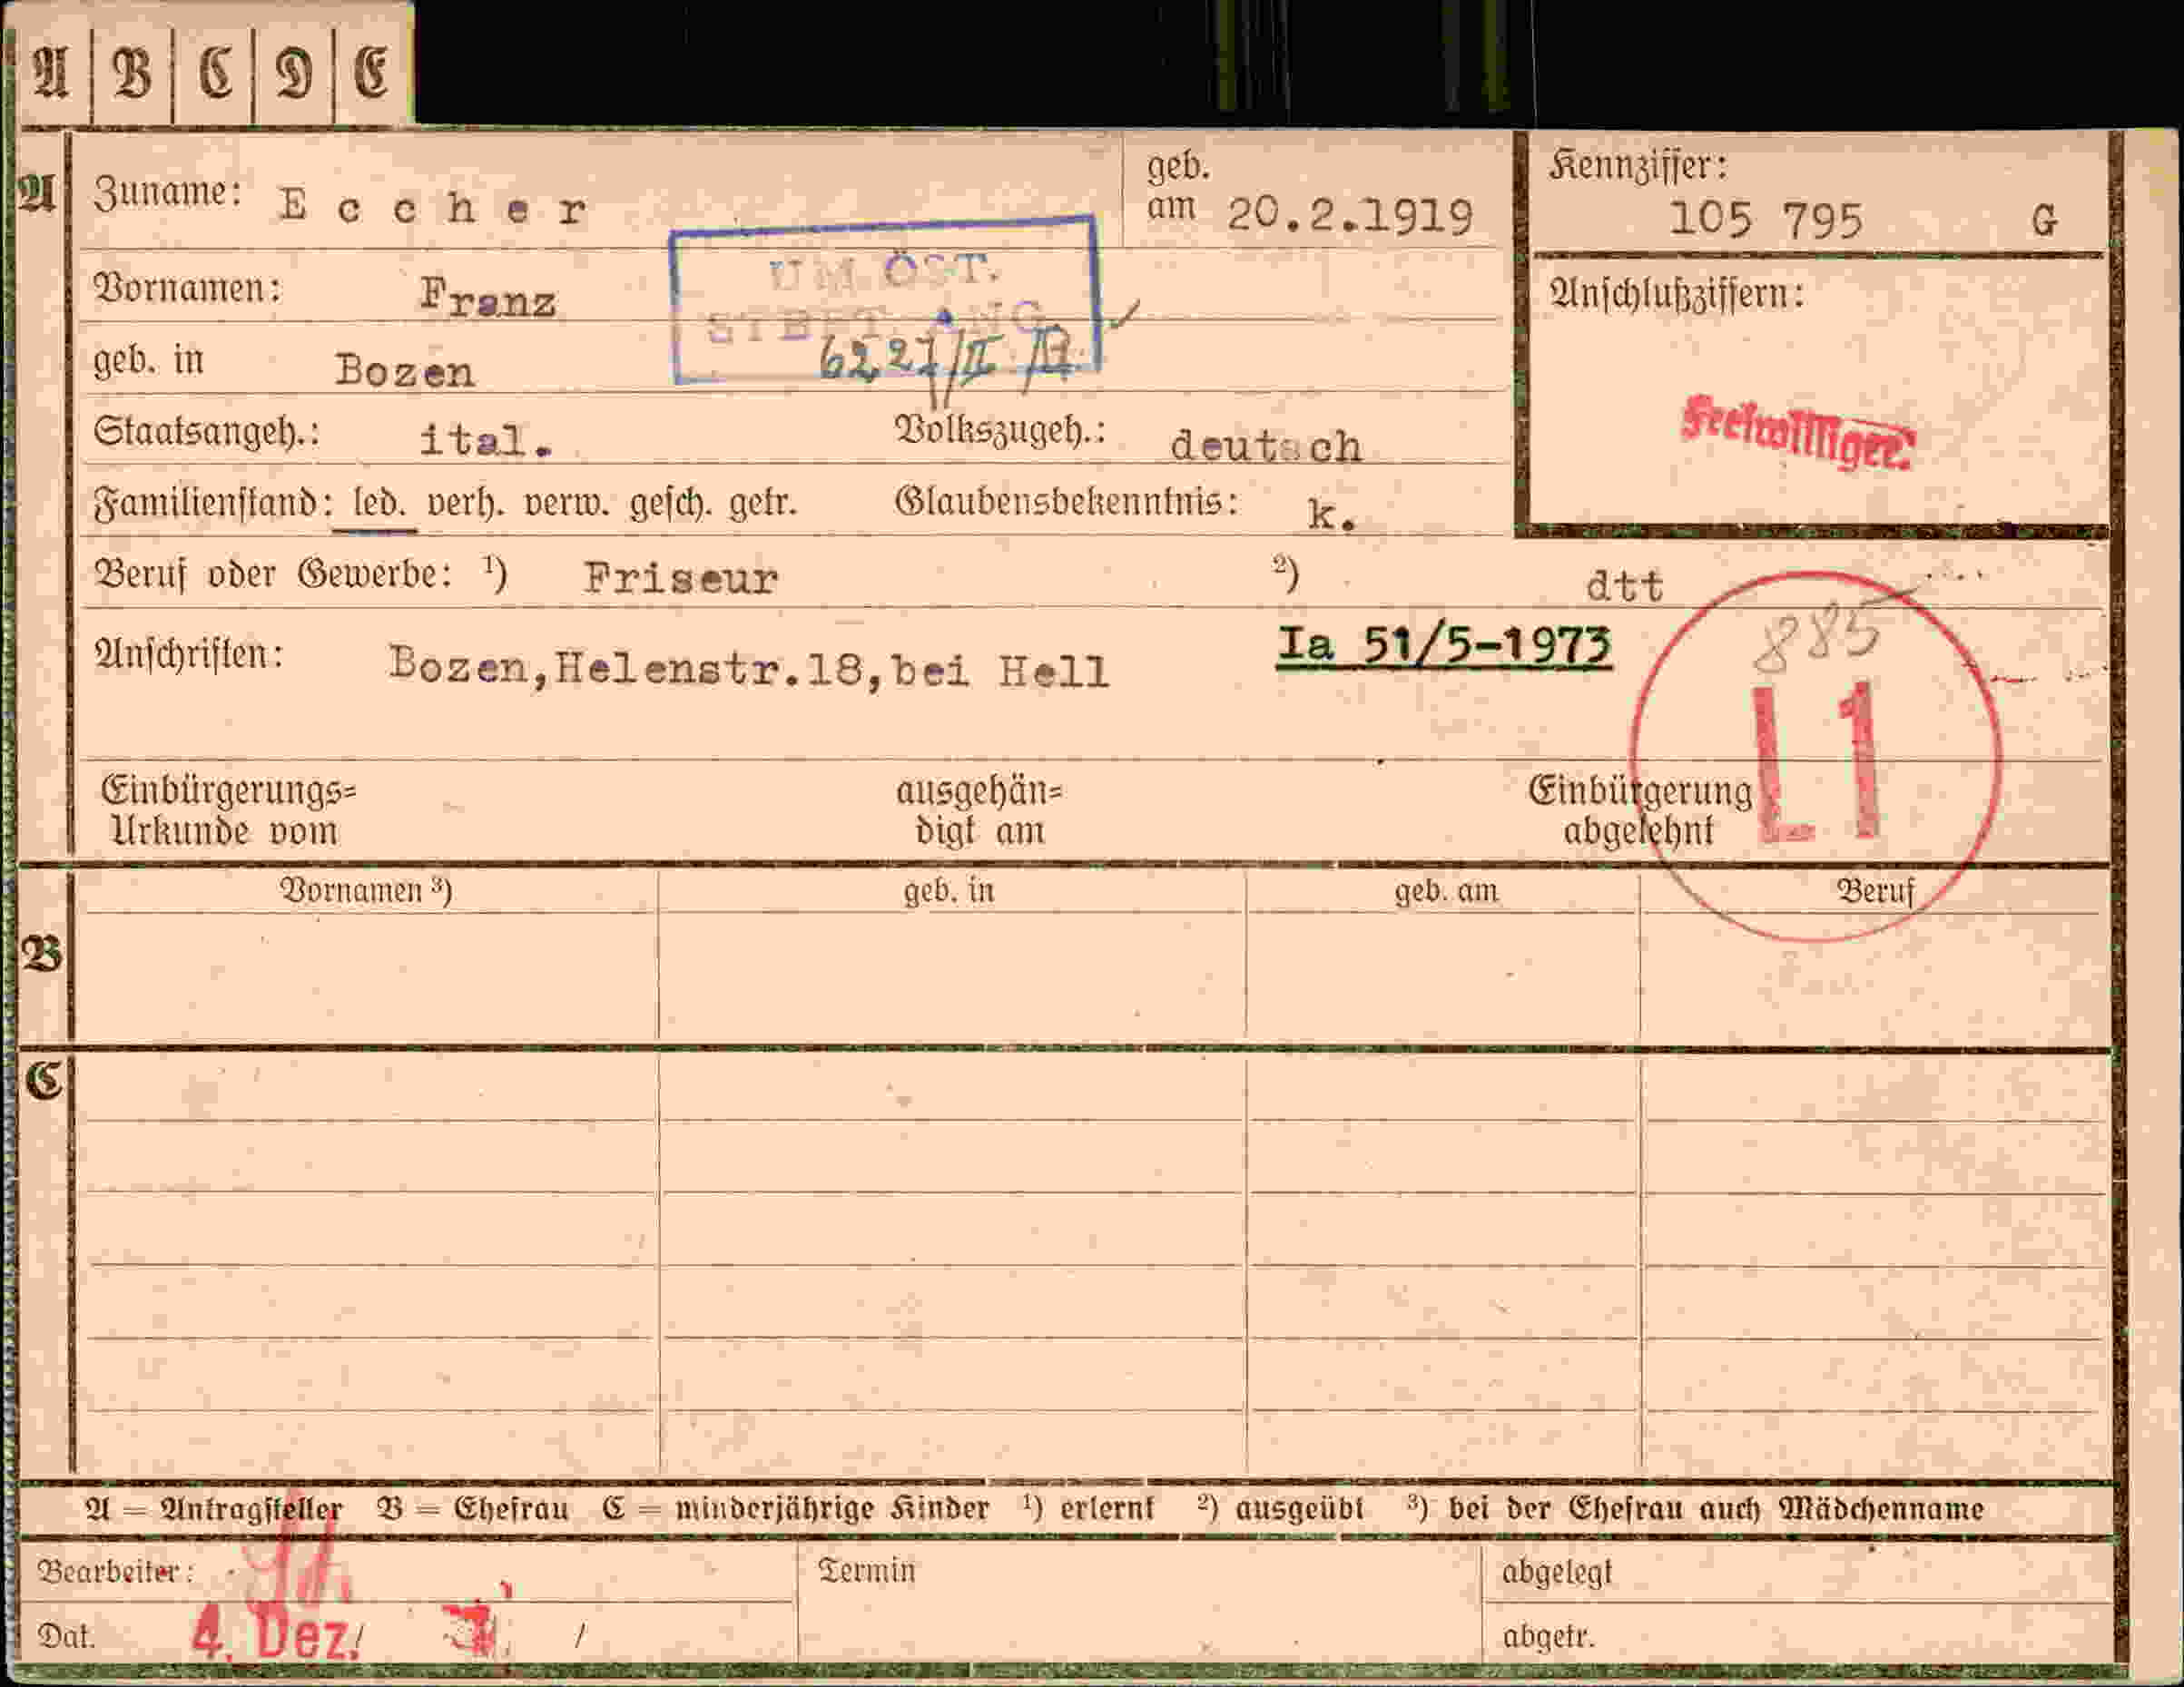 A B C D E
A Zuname: Eccher geb. am 20.2.1919 Kennziffer: 105 795 G
Vornamen: Franz UM ÖST. Anschlußziffern:
geb. in Bozen 6227/II
Staatsangeh.: ital. Volkszugeh.: deutsch Freiwilliger
Familienstand: led. verh. verw. gesch. getr. Glaubensbekenntnis: k.
Beruf oder Gewerbe: ¹) Friseur ²) dtt
885
Anschriften: Bozen,Helenstr.18,bei Hell Ia 51/5-1973
L1
Einbürgerungs= ausgehän= Einbürgerung
Urkunde vom digt am abgelehnt
Vornamen ³) geb. in geb. am Beruf
B
C
A = Antragsteller B = Ehefrau C = minderjährige Kinder ¹) erlernt ²) ausgeübt ³) bei der Ehefrau auch Mädchenname
Bearbeiter: Termin abgelegt
Dat. 4. Dez. abgetr.